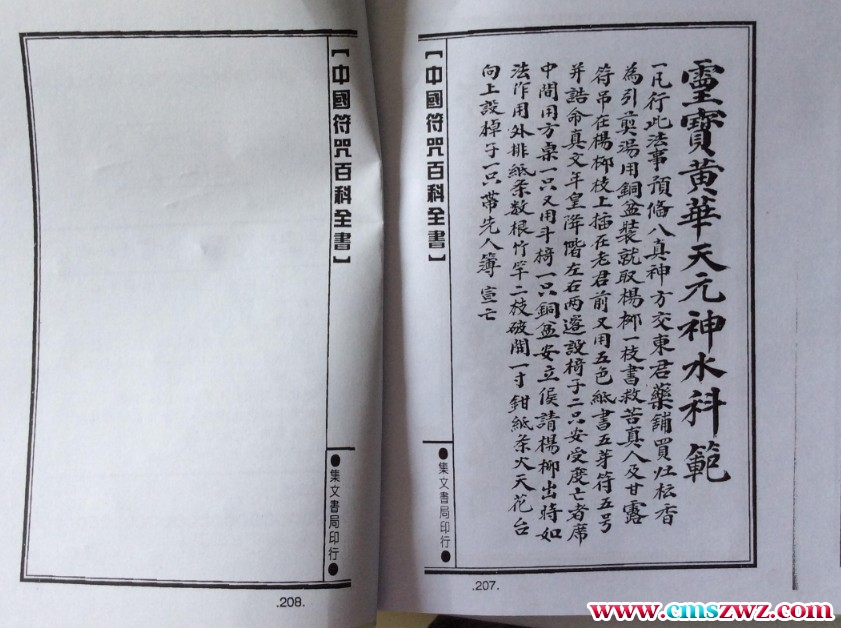 靈寶黃華天元神水科範
一凡行此法事預備八真神方交東君藥舖買灶枟香
為引煎湯用銅盆裝就取楊柳一枝書救苦真人及甘露
符吊在楊柳枝上插在老君前又用五色紙書五芽符五号
并誥命真文年皇降階左右兩邊設椅子二只安受度亡者席
中間用方桌一只又用斗椅一只銅盆安立侯請楊柳出時如
法作用外排紙条数根竹竿二枝破開一寸鉗紙条火天花台
向上設棹子一只帶先人簿 宣亡
【中國符咒百科全書】
●集文書局印行●
.207.
【中國符咒百科全書】
●集文書局印行●
.208.
www.cmszwz.com